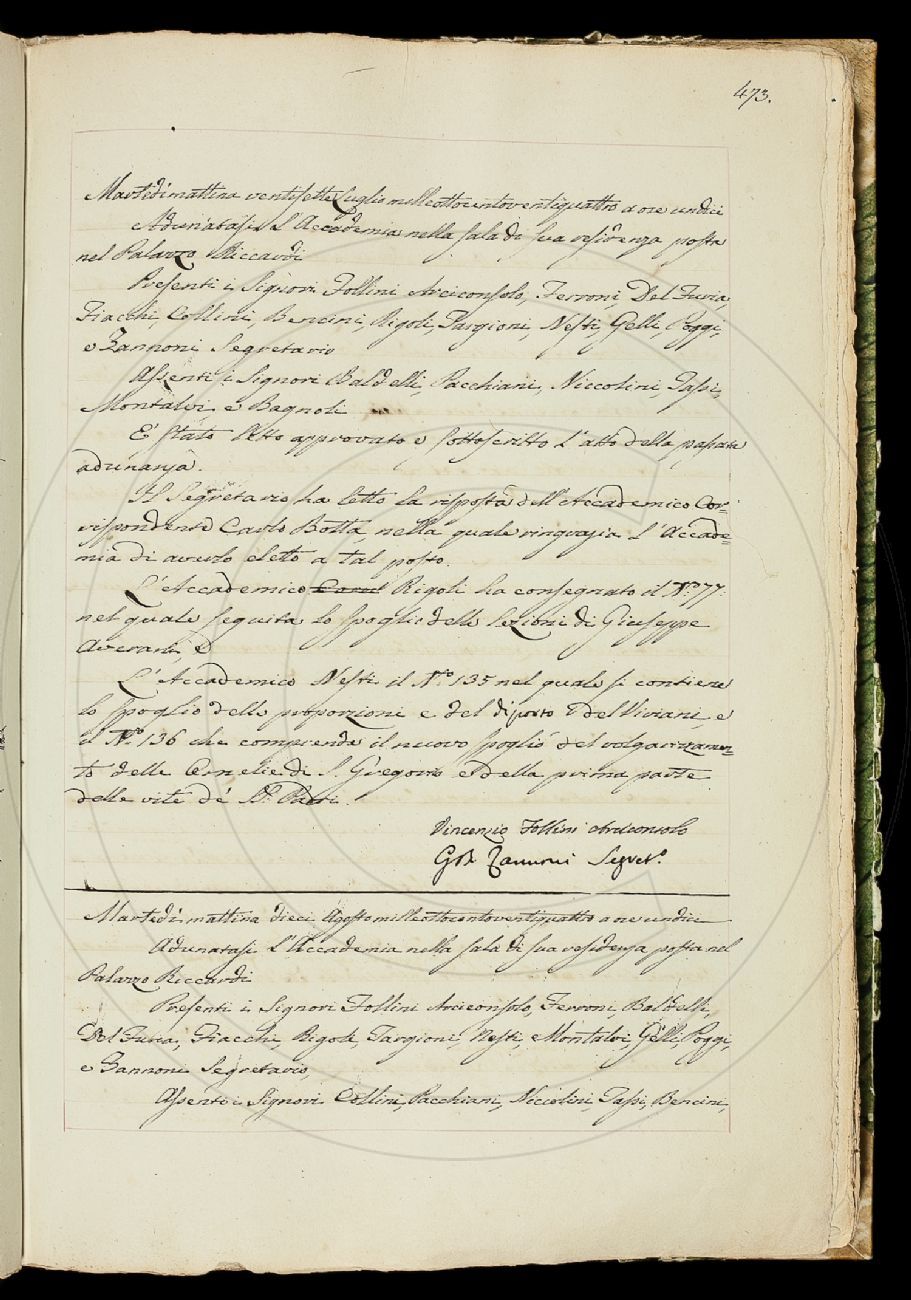 473.
Martedì mattina ventisette Luglio mille ottocentoventiquattro a ore undici
Adunatasi L'Accademia nella sala di sua residenza posta
nel Palazzo Riccardi
Presenti i Signori Follini Arciconsolo, Ferroni, Del Furia,
Fiacchi, Collini, Bencini, Rigoli, Targioni, Nesti, Gelli, Poggi,
e Zannoni Segretario
Assenti i Signori Baldelli, Pacchiani, Niccolini, Tassi,
Montalvi e Bagnoli
E' stato letto approvato e sottoscritto L'atto della passata
adunanza.
Il Segretario ha letto la risposta dell'Accademico Cor-
rispondente Carlo Botta, nella quale ringrazia L'Accade=
mia di averlo eletto a tal posto.
L'Accademico Rigoli ha consegnato il N.º 77.
nel quale seguita lo spoglio delle Lezioni di Giuseppe
Averani, e
L'Accademico Nesti il N.º 135 nel quale si contiene
lo spoglio delle proporzioni e del diporto del Viviani, e
il N.º 136 che comprende il nuovo spoglio del volgarizzamen=
to delle Omelie di S. Gregorio e della prima parte
delle vite de' SS. Padri.
Vincenzio Follini Arciconsolo
Gio. Bat. Zannoni Segret.º
Martedì mattina dieci Agosto mille ottocentoventiquattro a ore undici
Adunatasi L'Accademia nella sala di sua residenza posta nel
Palazzo Riccardi
Presenti i Signori Follini Arciconsolo, Ferroni, Baldelli,
Del Furia, Fiacchi, Rigoli, Targioni, Nesti, Montalvi Gelli, Poggi,
e Zannoni Segretario,
Assenti i Signori Collini, Pacchiani, Niccolini, Tassi, Bencini,